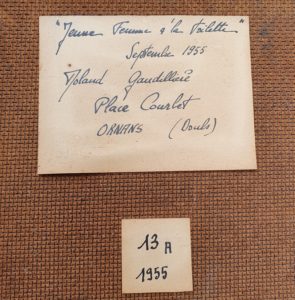 "Jeune Femme à la Toilette"
Septembre 1955
Roland Gaudillière
Place Courbet
ORNANS (Doubs)
13 A
1955